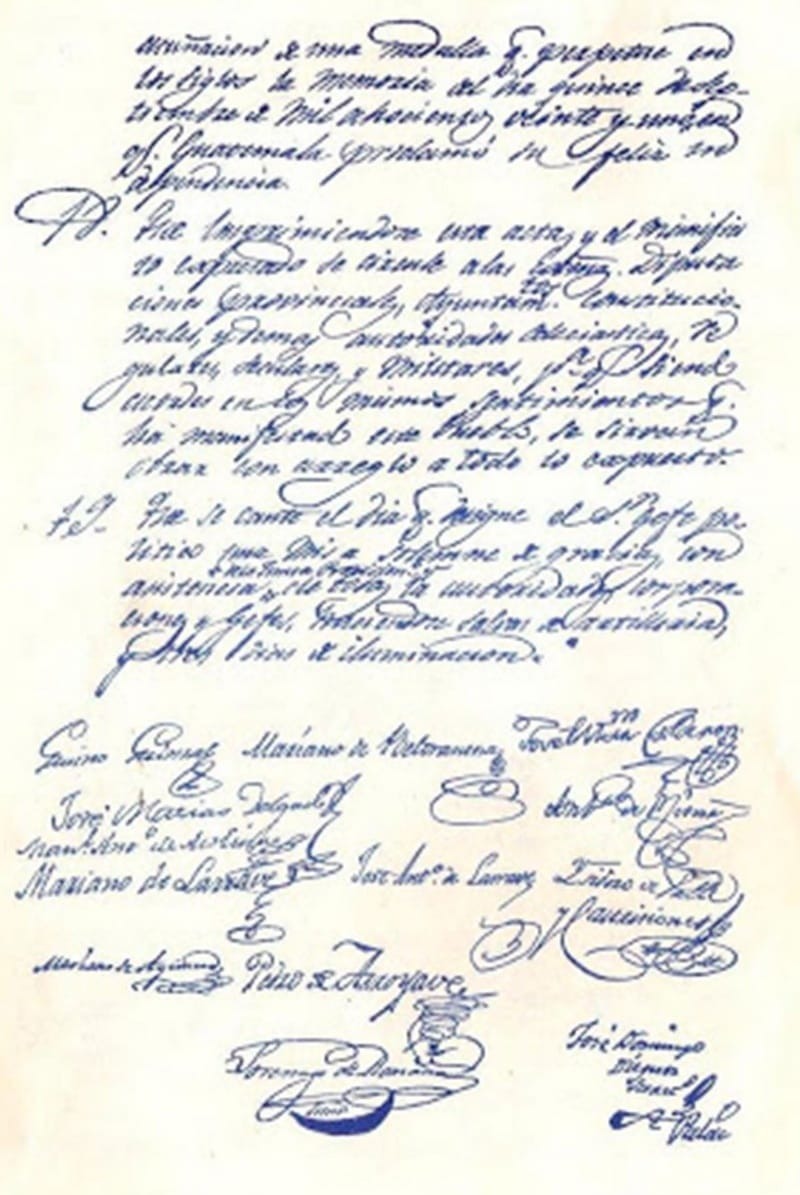 acuñacion de una medalla q. perpetue en
los siglos la memoria del dia quince de Se-
tiembre de mil ochocientos veinte y uno, en
q. Guatemala proclamó su feliz in
dependencia.
18. Que imprimiendose esta acta, y el manifies
to expresado se circule a las Diputa
ciones provinciales, Ayuntam.tos Constitucio-
nales, y demas autoridades eclesiasticas, re
gulares, seculares, y militares, p.a q. siendo
acordes en los mismos sentimientos q.
ha manifestado este Pueblo, se sirvan
obrar con arreglo a todo lo expuesto.
Que se cante el dia q. designe el S.r Gefe po-
litico una Misa solemne de gracias, con
asistencia de todas las autoridades, corpora-
ciones y Gefes, haciendose salvas de artilleria,
y tres dias de iluminacion.
Gavino Gainza
Mariano de Beltranena
José Mariano Calderon
José Matias Delgado
Man.l Ant.o de Molina
Ant.o de Rivera
Mariano de Larrave
José Ant.o de Larrave
Isidro de Valle
y Castriciones
Mariano de Aycinena
Pedro de Arroyave
Lorenzo de Romaña
José Domingo
Dieguez